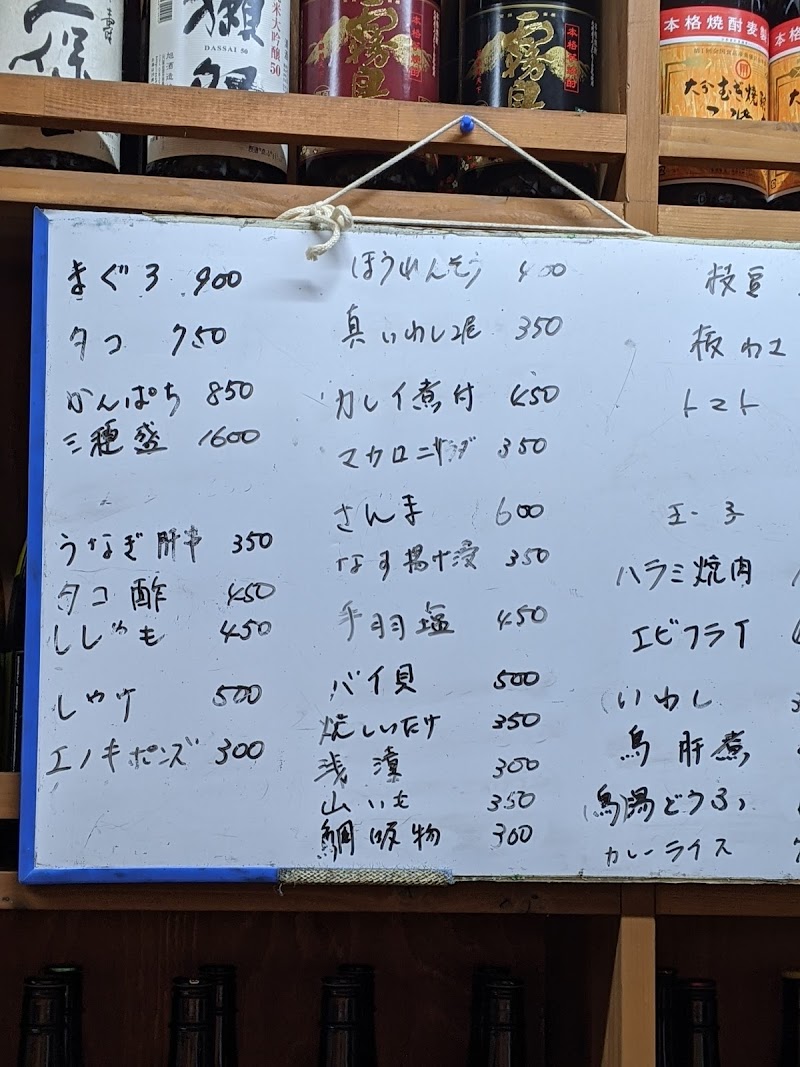 久保
獺祭
DASSAI 50
米大吟醸50
旭酒造
霧島
本格焼酎
霧島
本格焼酎
本格焼酎麦製
本格焼
大分むぎ焼酎
まぐろ 900
タコ 750
かんぱち 850
三種盛 1600
うなぎ肝串 350
タコ酢 450
ししゃも 450
しゃけ 500
エノキポンズ 300
ほうれんそう 400
真いわし2尾 350
カレイ煮付 450
マカロニサラダ 350
さんま 600
なす揚げ浸 350
手羽塩 450
バイ貝 500
焼しいたけ 350
浅漬 300
山いも 350
鯛吸物 300
枝豆
板わさ
トマト
ハラミ焼肉
エビフライ
いわし
鳥肝煮
鳥湯どうふ
カレーライス